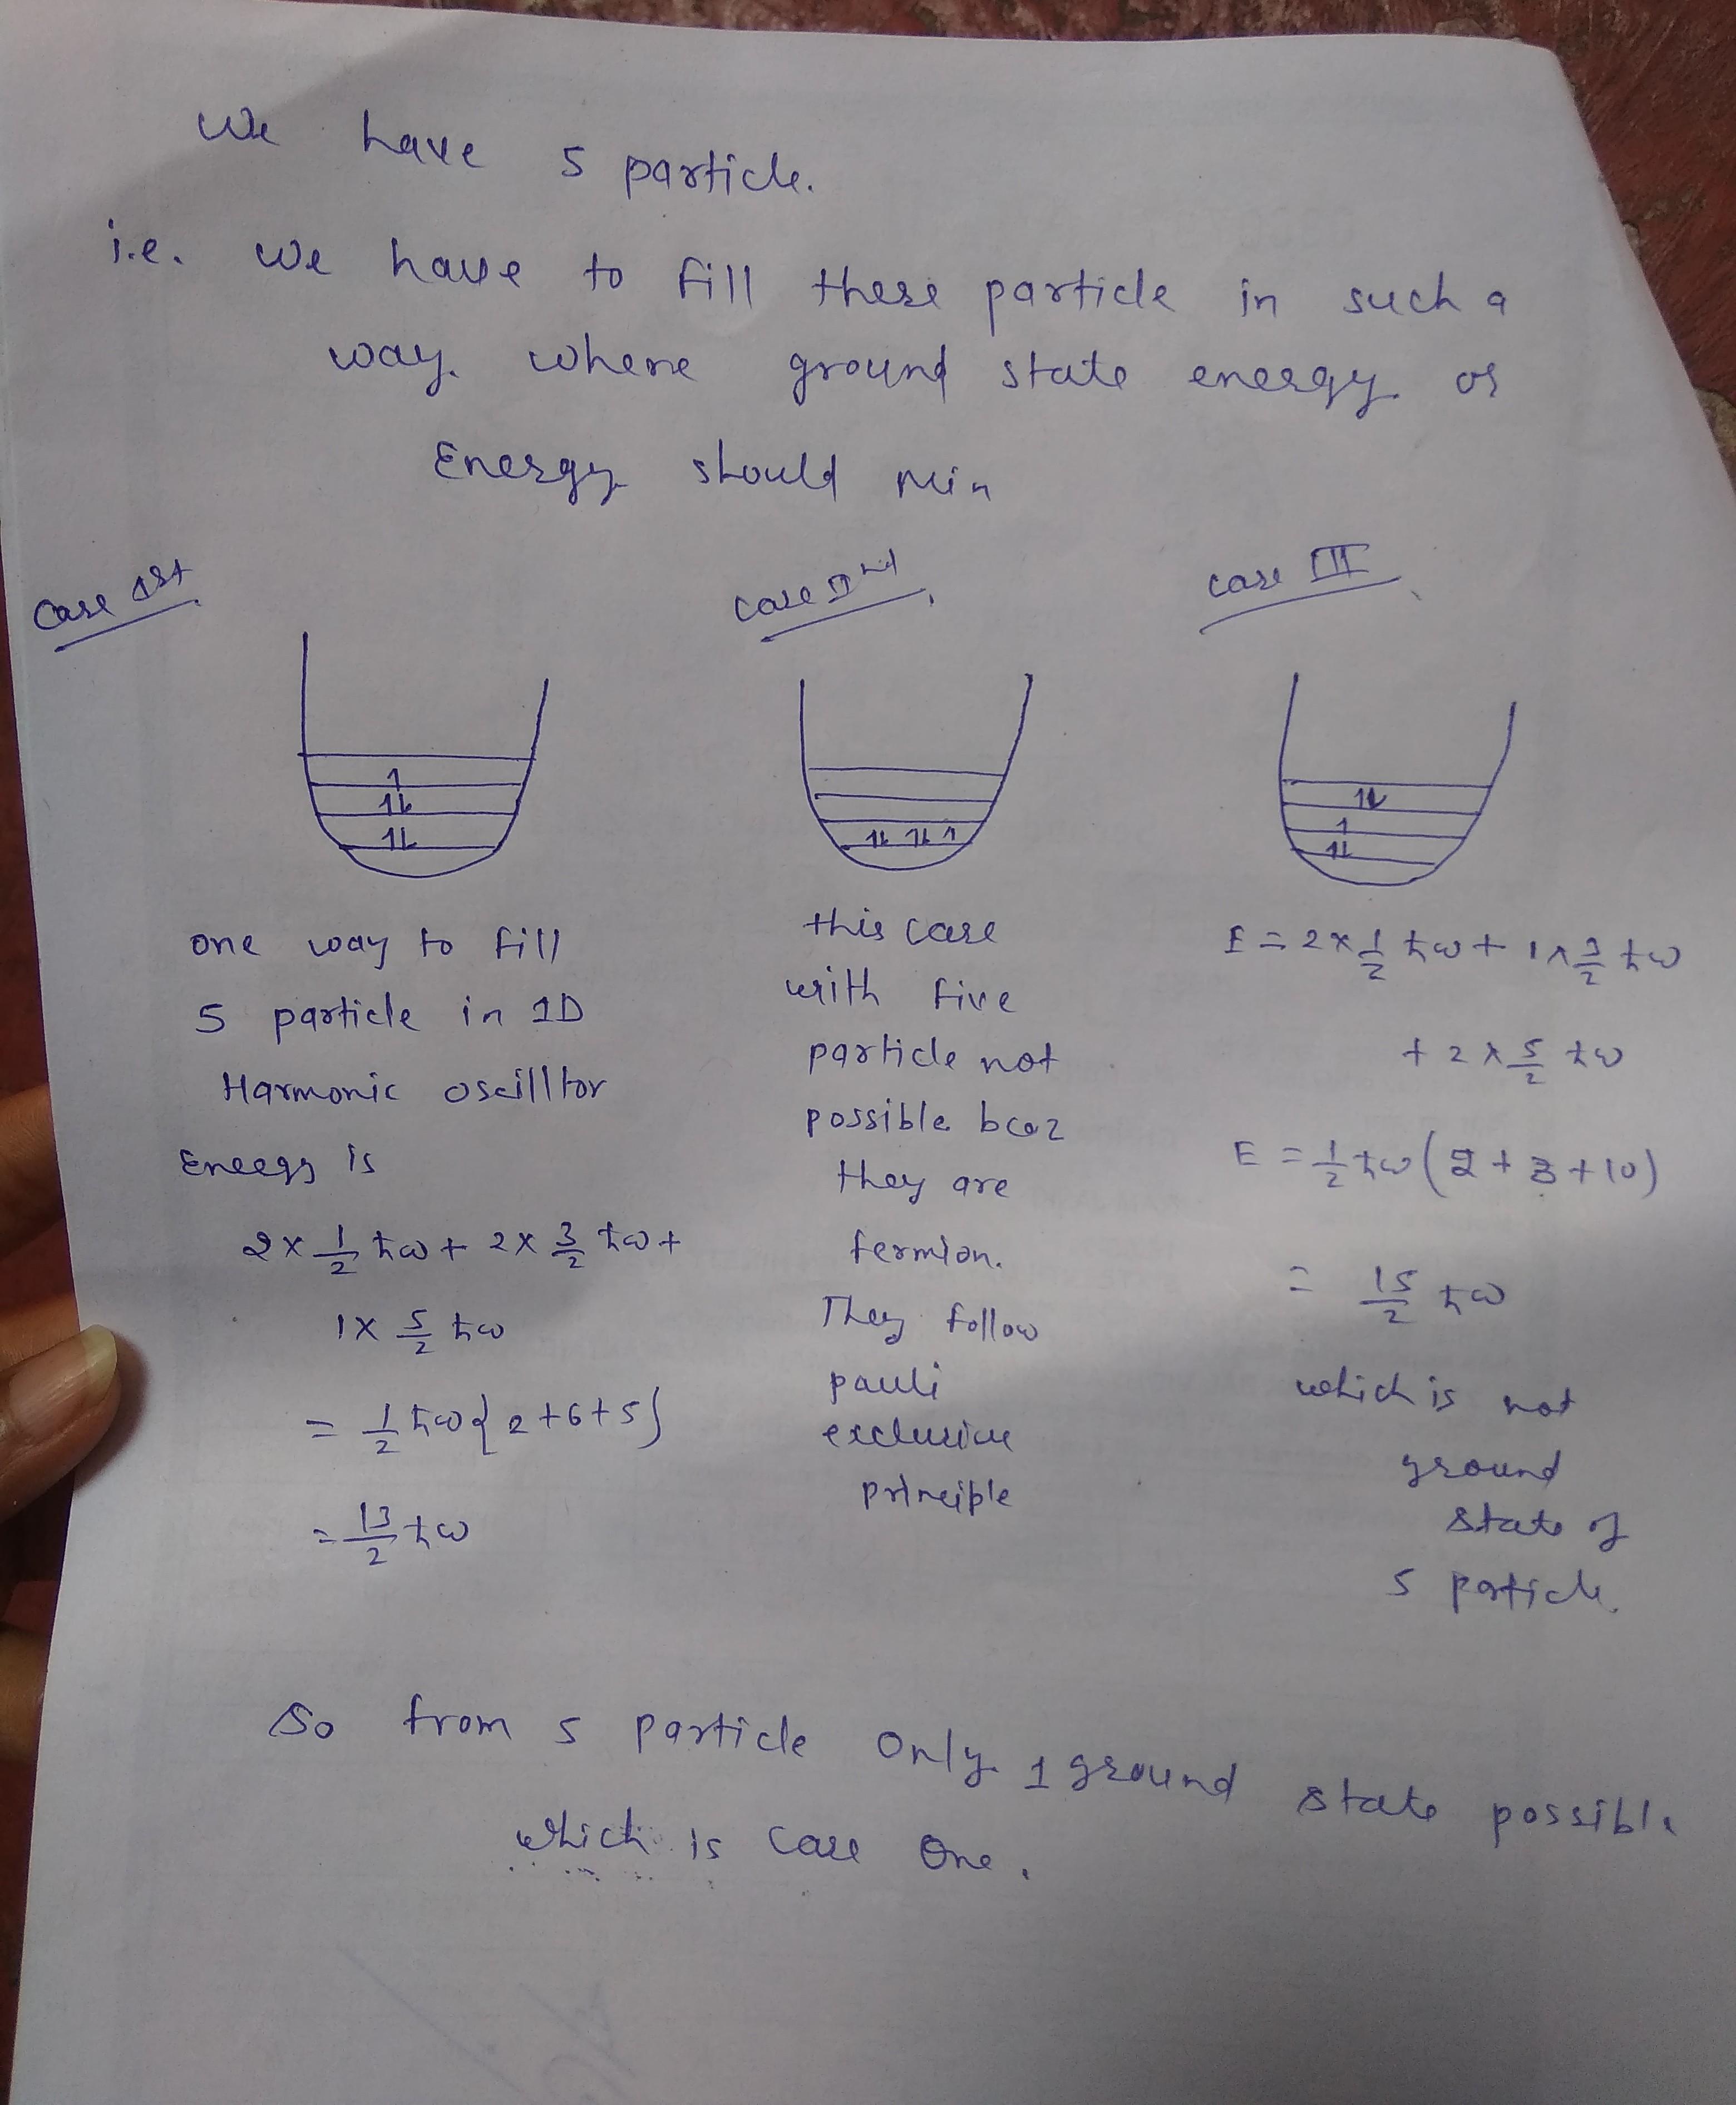 We have 5 particle.
i.e. we have to fill these particle in such a
way. where ground state energy or
Energy should min
Case 1st
one way to fill
5 particle in 1D
Harmonic oscilltor
Eneegy is
2 × 1/2 ħω + 2 × 3/2 ħω +
1 × 5/2 ħω
= 1/2 ħω { 2 + 6 + 5 }
= 13/2 ħω
Case IInd
this case
with five
particle not
possible bcoz
they are
fermion.
They follow
pauli
exclusive
principle
case III
E = 2 × 1/2 ħω + 1 × 3/2 ħω
+ 2 × 5/2 ħω
E = 1/2 ħω ( 2 + 3 + 10 )
= 15/2 ħω
which is not
ground
state of
5 particle.
So from 5 particle Only 1 ground state possible
which is case One.